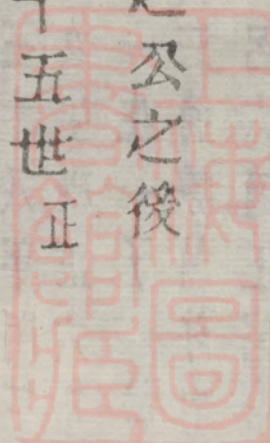 公之後
十五世正
上海圖書館藏